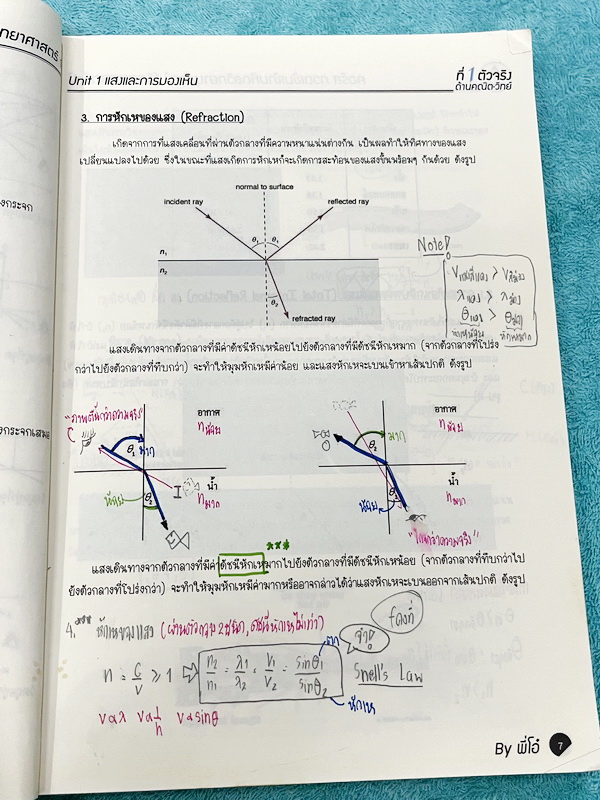 Unit 1 แสงและการมองเห็น
ที่ 1 ตัวจริง
ด้านคณิต-วิทย์
3. การหักเหของแสง (Refraction)
เกิดจากการที่แสงเคลื่อนที่ผ่านตัวกลางที่มีความหนาแน่นต่างกัน เป็นผลทำให้ทิศทางของแสง
เปลี่ยนแปลงไปด้วย ซึ่งในขณะที่แสงเกิดการหักเหก็จะเกิดการสะท้อนของแสงขึ้นพร้อมๆ กันด้วย ดังรูป
normal to surface
incident ray
reflected ray
θ₁ θ₁
n₁
n₂
θ₂
refracted ray
Note!
แสงเดินทางจากตัวกลางที่มีค่าดัชนีหักเหน้อยไปยังตัวกลางที่มีดัชนีหักเหมาก (จากตัวกลางที่โปร่ง
กว่าไปยังตัวกลางที่ทึบกว่า) จะทำให้มุมหักเหมีค่าน้อย และแสงหักเหจะเบนเข้าหาเส้นปกติ ดังรูป
"ภาพตื้นกว่าความจริง"
อากาศ
n น้อย
θ₁ มาก
น้ำ
n มาก
น้อย θ₂
อากาศ
n น้อย
θ₂ มาก
น้ำ
n มาก
น้อย
"ไกลกว่าความจริง"
แสงเดินทางจากตัวกลางที่มีค่าดัชนีหักเหมากไปยังตัวกลางที่มีดัชนีหักเหน้อย (จากตัวกลางที่ทึบกว่าไป
ยังตัวกลางที่โปร่งกว่า) จะทำให้มุมหักเหมีค่ามากหรืออาจกล่าวได้ว่าแสงหักเหจะเบนออกจากเส้นปกติ ดังรูป
4. หักเหของแสง (ผ่านตัวกลาง 2 ชนิด, ดัชนีหักเหไม่เท่า)
fคงที่
จำ!
n = c/v ≥ 1 ⇒ n₂/n₁ = λ₁/λ₂ = v₁/v₂ = sinθ₁/sinθ₂
Snell's Law
หักเห
v∝λ v∝1/n v∝sinθ
By พี่โอ๋
7